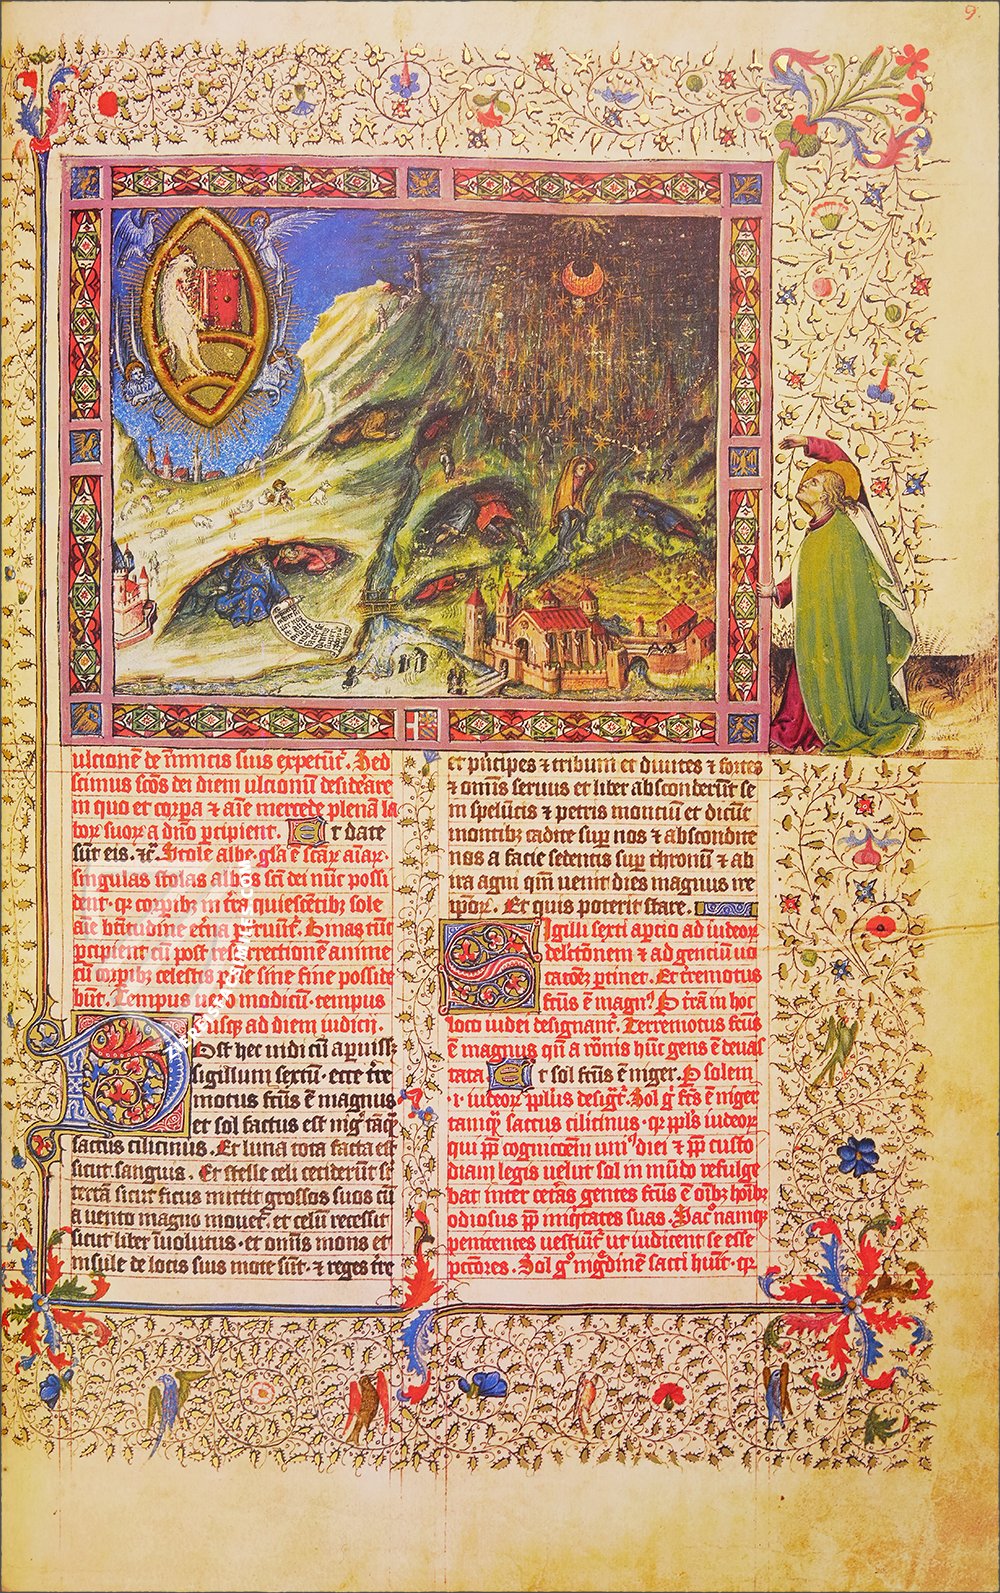 9.
ulcione de inimicis suis expetunt. Sed
scimus scos dei diem ulcionum desiderare
in quo et corpa & aīe mercede plenā la
bor suor a dno pcipient. Et date
sūt eis. &c. Stole albe. glā ē scār aīar.
singulas stolas albas scī dei nūc possi
dent. qr corpibz in tra quiescētibz sole
aīe btitudine etna pfruunt. binas tūc
pcipient cū post resurrectionē anime
cū corpibz celestis regnū sine fine posside
būt. Tempus uero modicū. tempus
usqz ad diem iudicii.
Post hec uidi cū apuiss
sigillum sextū. ecce tre
motus fcūs ē magnus
et sol factus est nig tāqz
saccus cilicinus. Et luna tota facta est
sicut sanguis. Et stelle celi ceciderūt sr
terrā sicut ficus mittit grossos suos cū
a uento magno mouet. et celū recessit
sicut liber īuolutus. et omīs mons et
insule de locis suis mote sūt. & reges tre
et pncipes & tribuni et diuites & fortes
& omīs seruus et liber absconderūt se
in speluncis & petris montium et dicūt
montibz cadite sup nos & abscondite
nos a facie sedentis sup thronū & ab
ira agni qm uenit dies magnus ire
ipor. Et quis poterit stare.
Sigilli sexti apcio ad iudeor
deiectonem & ad gentiū uo
catoēs ptinet. Et terremotus
fcūs ē magn9 P trā in hoc
loco iudei designant. Terremotus fcūs
ē magnus qn a romīs hūc gens ē deuas
tata. Et sol fcūs ē niger. P solem
.i. iudeor ppllus design. Sol g fcs ē niger
tamqz saccus cilicinus. qr ppls iudeor
qui pp cognicoēm uni9 dei & pp custo
diam legis uelut sol in mūdo refulge
bat inter cetas gentes fcūs ē oībz hoībz
odiosus pp iniqtates suas. Sac namqz
penitentes uestiūt ut iudicent se esse
pctores. Sol g nigdinē sacci hūit. qr